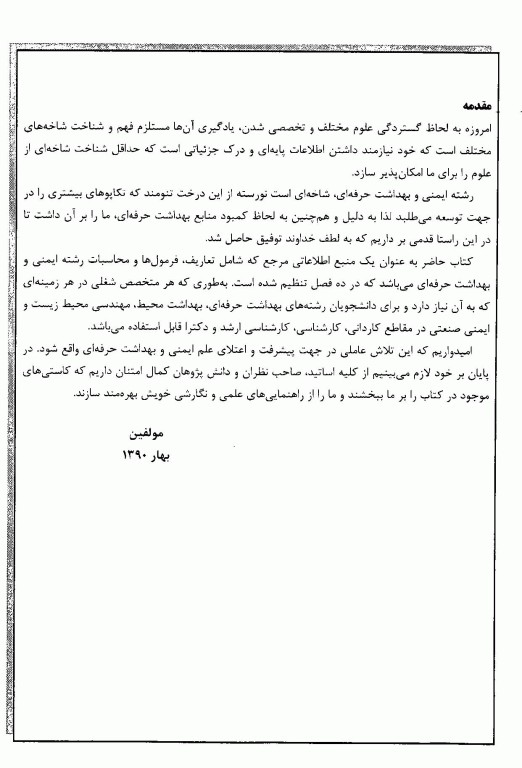 مقدمه
امروزه به لحاظ گستردگی علوم مختلف و تخصصی شدن، یادگیری آن‌ها مستلزم فهم و شناخت شاخه‌های
مختلف است که خود نیازمند داشتن اطلاعات پایه‌ای و درک جزئیاتی است که حداقل شناخت شاخه‌ای از
علوم را برای ما امکان‌پذیر سازد.
رشته ایمنی و بهداشت حرفه‌ای، شاخه‌ای است نورسته از این درخت تنومند که تکاپوهای بیشتری را در
جهت توسعه می‌طلبد لذا به دلیل و هم‌چنین به لحاظ کمبود منابع بهداشت حرفه‌ای، ما را بر آن داشت تا
در این راستا قدمی بر داریم که به لطف خداوند توفیق حاصل شد.
کتاب حاضر به عنوان یک منبع اطلاعاتی مرجع که شامل تعاریف، فرمول‌ها و محاسبات رشته ایمنی و
بهداشت حرفه‌ای می‌باشد که در ده فصل تنظیم شده است. به‌طوری که هر متخصص شغلی در هر زمینه‌ای
که به آن نیاز دارد و برای دانشجویان رشته‌های بهداشت حرفه‌ای، بهداشت محیط، مهندسی محیط زیست و
ایمنی صنعتی در مقاطع کاردانی، کارشناسی، کارشناسی ارشد و دکترا قابل استفاده می‌باشد.
امیدواریم که این تلاش عاملی در جهت پیشرفت و اعتلای علم ایمنی و بهداشت حرفه‌ای واقع شود. در
پایان بر خود لازم می‌بینیم از کلیه اساتید، صاحب نظران و دانش پژوهان کمال امتنان داریم که کاستی‌های
موجود در کتاب را بر ما ببخشند و ما را از راهنمایی‌های علمی و نگارشی خویش بهره‌مند سازند.
مولفین
بهار ۱۳۹۰